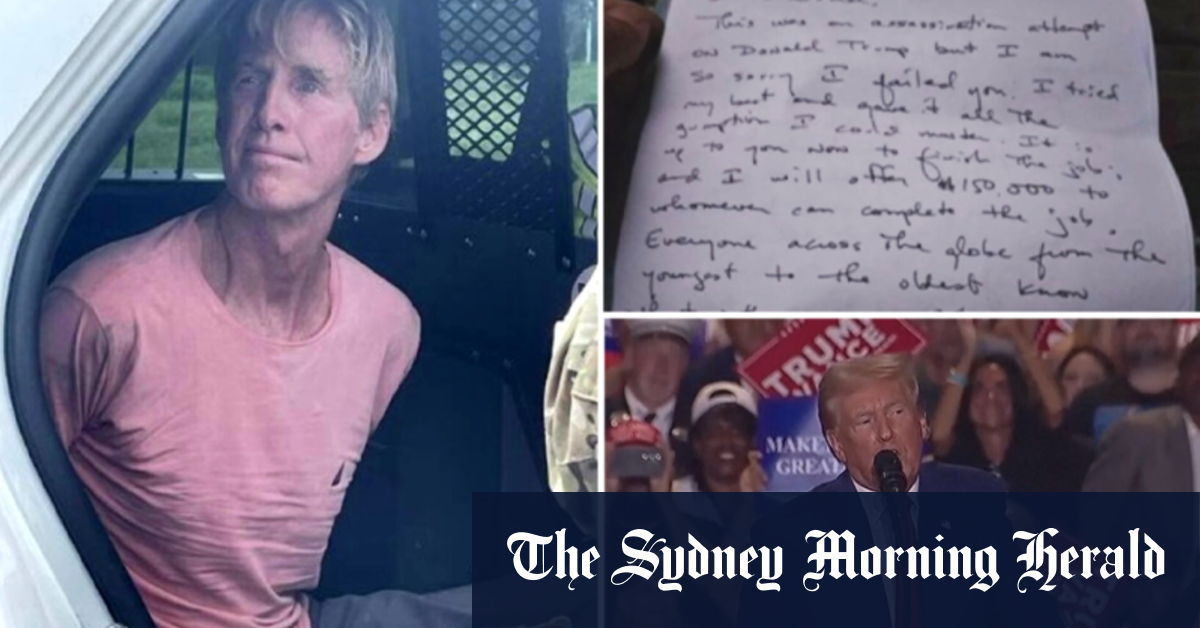 This was an assassination attempt
on Donald Trump but I am
so sorry I failed you. I tried
my best and gave it all the
gumption I could muster. It is
up to you now to finish the job;
and I will offer $150,000 to
whomever can complete the job.
Everyone across the globe from the
youngest to the oldest know
TRUMP
MAKE
GREAT
The Sydney Morning Herald